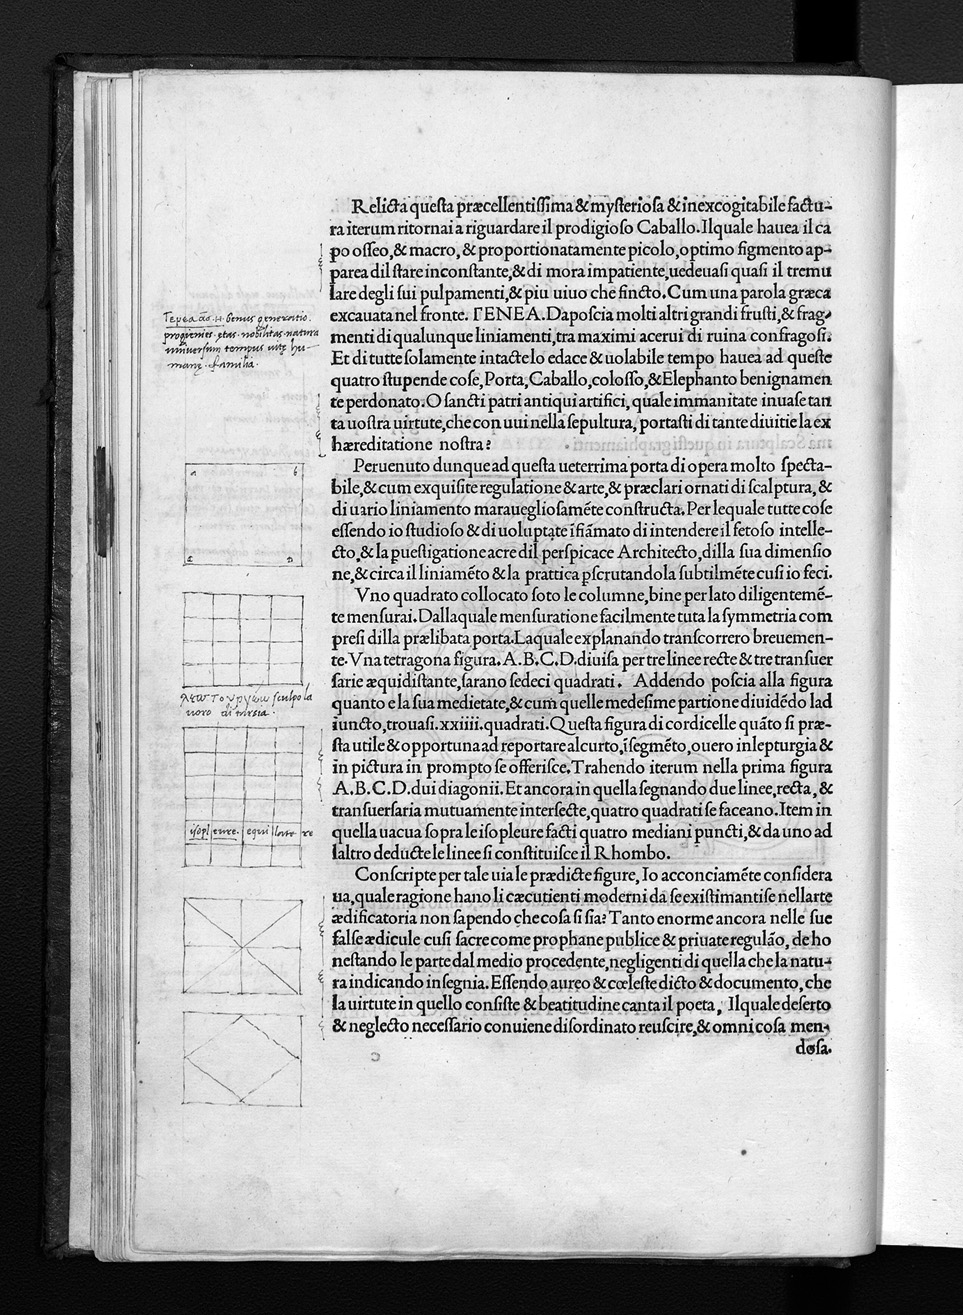 Relicta questa præcellentissima & mysteriosa & inexcogitabile factu-
ra iterum ritornai a riguardare il prodigioso Caballo. Ilquale hauea il ca
po osseo, & macro, & proportionatamente picolo, optimo figmento ap-
parea dil stare inconstante, & di mora impatiente, uedeuasi quasi il tremu
lare degli sui pulpamenti, & piu uiuo che fincto. Cum una parola græca
excauata nel fronte. ΓΕΝΕΑ. Daposcia molti altri grandi frusti, & frag-
menti di qualunque liniamenti, tra maximi acerui di ruina confragosi.
Et di tutte solamente intacte lo edace & uolabile tempo hauea ad queste
quatro stupende cose, Porta, Caballo, colosso, & Elephanto benignamen
te perdonato. O sancti patri antiqui artifici, quale immanitate inuase tan
ta uostra uirtute, che con uui nella sepultura, portasti di tante diuitie la ex
hæreditatione nostra?
Peruenuto dunque ad questa ueterrima porta di opera molto specta-
bile, & cum exquisite regulatione & arte, & præclari ornati di scalptura, &
di uario liniamento marauegliosamẽte constructa. Per lequale tutte cose
essendo io studioso & di uoluptate ĩfiãmato di intendere il fetoso intelle-
cto, & la puestigatione acre dil perspicace Architecto, dilla sua dimensio
ne, & circa il liniamẽto & la prattica pscrutandola subtilmẽte cusi io feci.
Vno quadrato collocato soto le columne, bine per lato diligentemẽ-
te mensurai. Dallaquale mensuratione facilmente tuta la symmetria com
presi dilla prælibata porta. Laquale explanando transcorrero breuemen-
te. Vna tetragona figura. A. B. C. D. diuisa per tre linee recte & tre transuer
sarie æquidistante, sarano sedeci quadrati. Addendo poscia alla figura
quanto e la sua medietate, & cum quelle medesime partione diuidẽdo lad
iuncto, trouasi. xxiiii. quadrati. Questa figura di cordicelle quãto si præ-
sta utile & opportuna ad reportare alcurto, ĩsegmẽto, ouero inlepturgia &
in pictura in prompto se offerisce. Trahendo iterum nella prima figura
A. B. C. D. dui diagonii. Et ancora in quella segnando due linee, recta, &
transuersaria mutuamente intersecte, quatro quadrati se faceano. Item in
quella uacua sopra le isopleure facti quatro mediani puncti, & da uno ad
laltro deducte le linee si constituisce il Rhombo.
Conscripte per tale uia le prædicte figure, Io acconciamẽte considera
ua, quale ragione hano li cæcutienti moderni da se existimantise nellarte
ædificatoria non sapendo che cosa si sia? Tanto enorme ancora nelle sue
false ædicule cusi sacre come prophane publice & priuate regulão, de ho
nestando le parte dal medio procedente, negligenti di quella che la natu-
ra indicando insegnia. Essendo aureo & cœleste dicto & documento, che
la uirtute in quello consiste & beatitudine canta il poeta, Ilquale deserto
& neglecto necessario conuiene disordinato reuscire, & omni cosa men-
dosa.
genus generatio.
progenies. etas. nobilitas. natura
universum tempus uitę hu-
manę. familia.
a b
c D
sculpo la
uoro di tarsia.
isopleure. equilatere